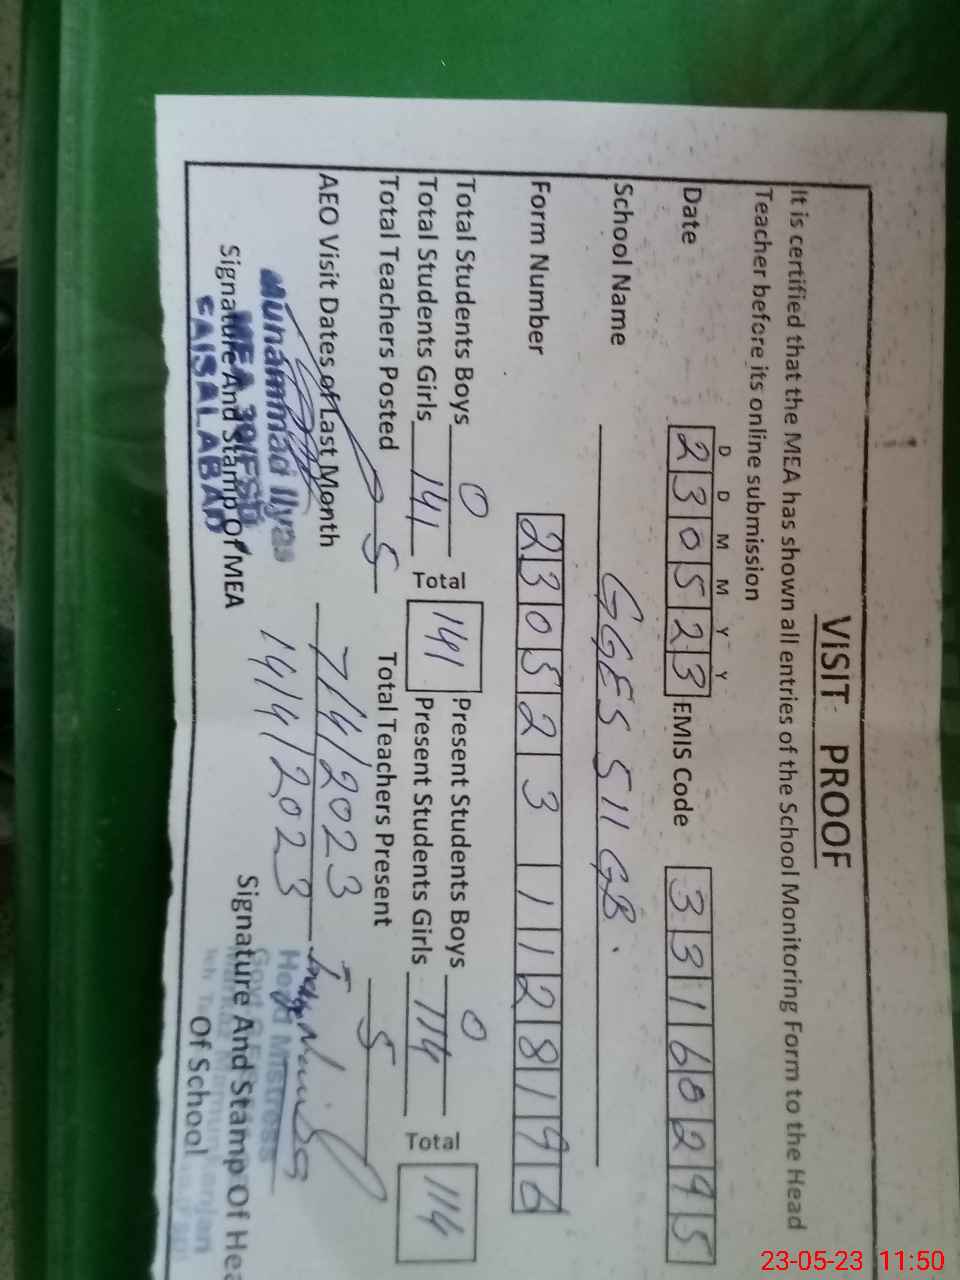 VISIT PROOF
It is certified that the MEA has shown all entries of the School Monitoring Form to the Head
Teacher before its online submission
D D M M Y Y
Date 230523 EMIS Code 33160295
School Name GGES 511 GB.
Form Number 230523 1128196
Total Students Boys 0 Present Students Boys 0
Total Students Girls 141 Total 141 Present Students Girls 114 Total 114
Total Teachers Posted 5 Total Teachers Present 5
AEO Visit Dates of Last Month 7/4/2023
14/4/2023
Muhammad Ilyas
MEA 39/FSD
FAISALABAD
Signature And Stamp Of MEA
Head Mistress
Signature And Stamp Of Hea
Of School
23-05-23 11:50